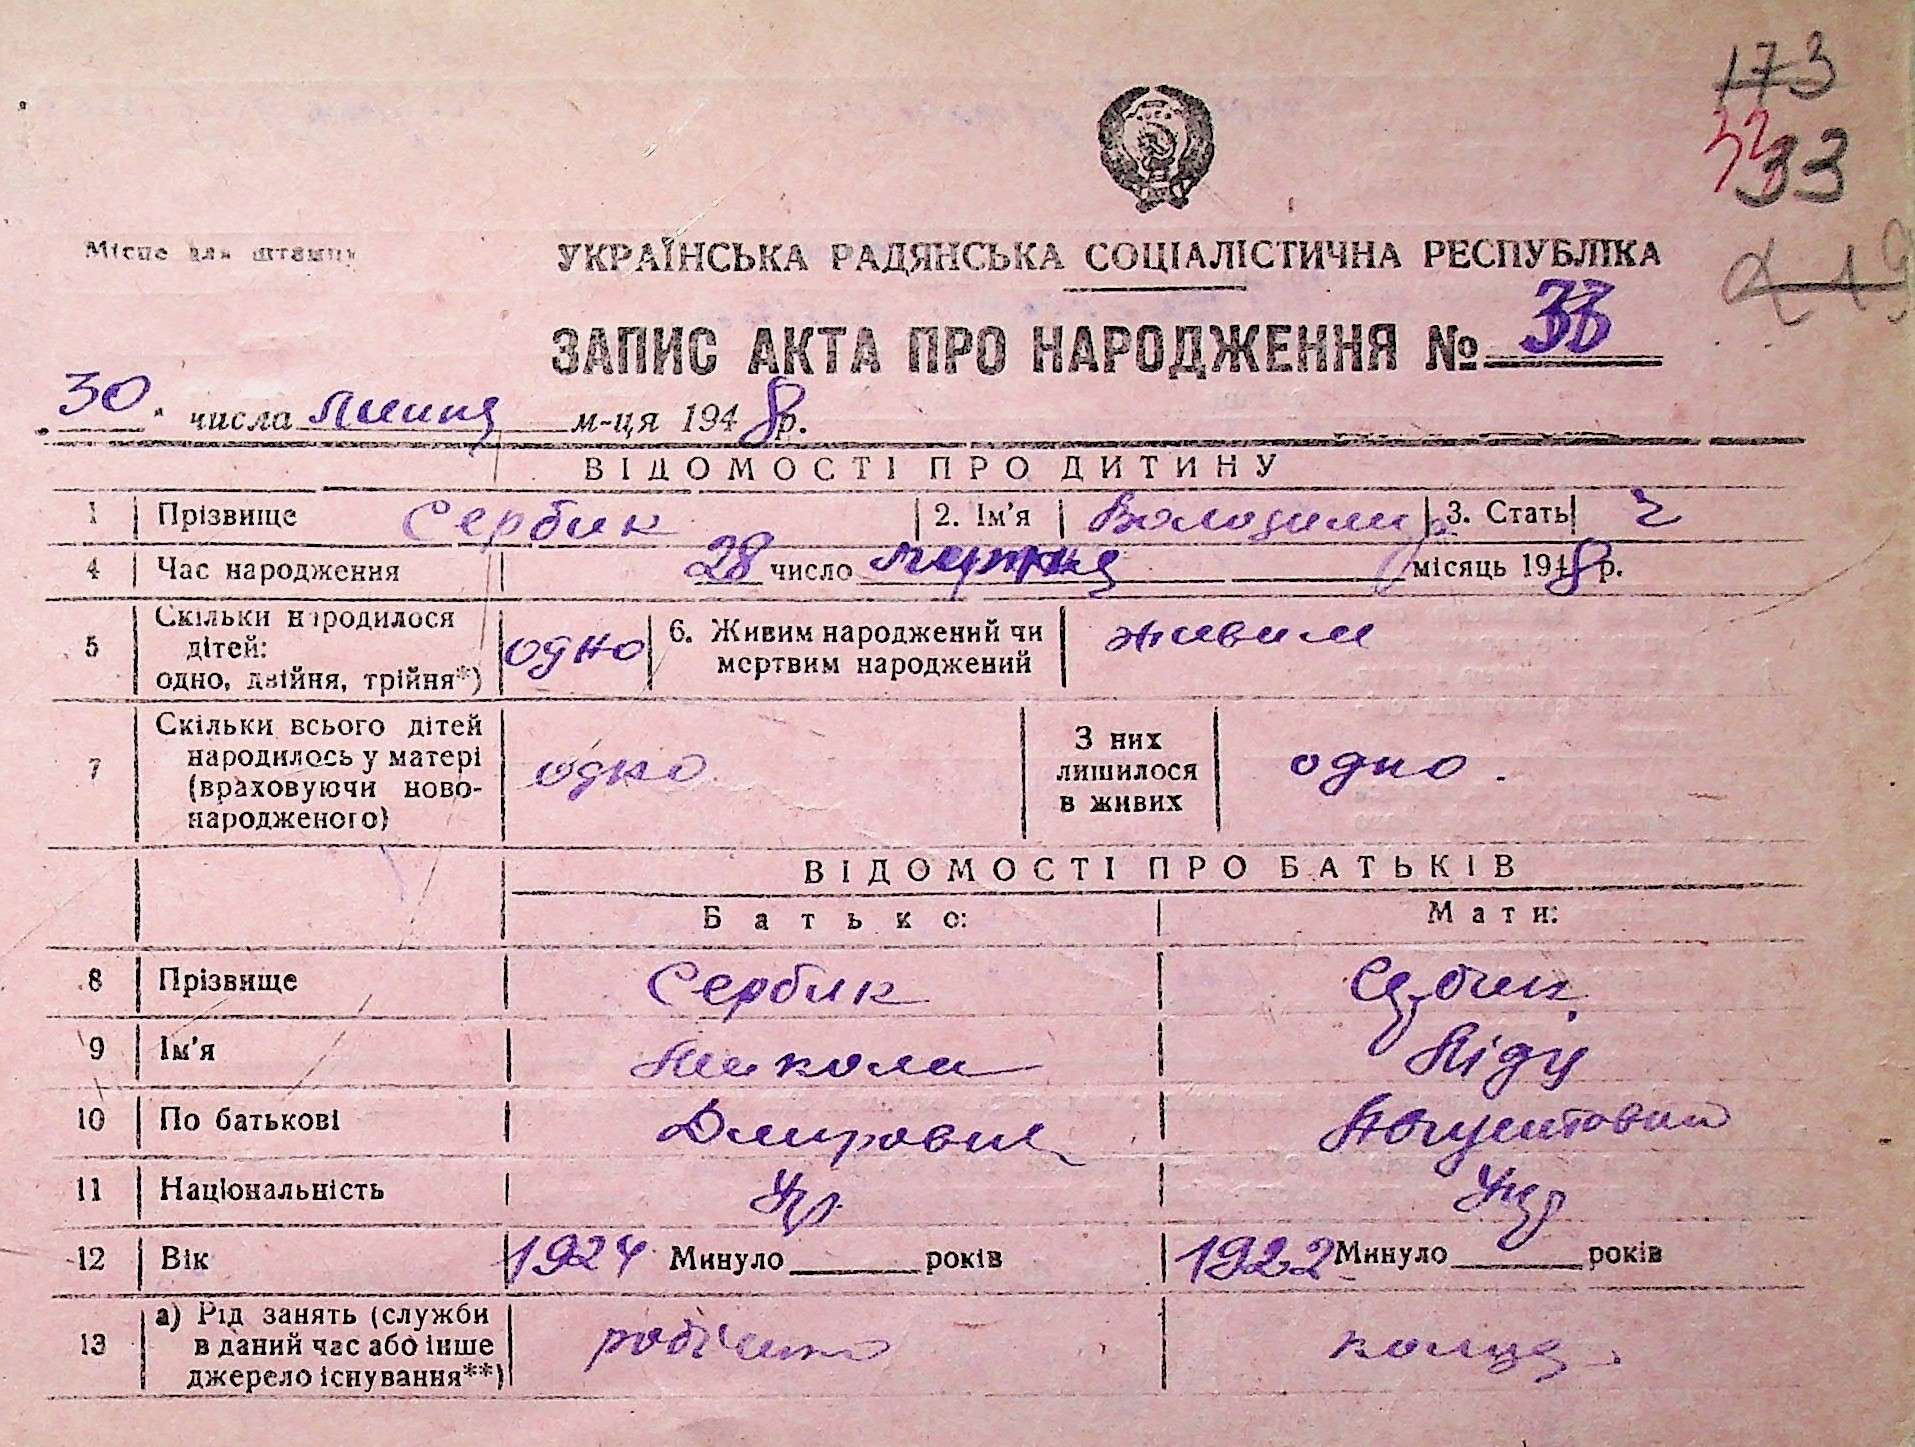 173
33
33
Місце для штампу
УКРАЇНСЬКА РАДЯНСЬКА СОЦІАЛІСТИЧНА РЕСПУБЛІКА
ЗАПИС АКТА ПРО НАРОДЖЕННЯ № 33
30 числа липня м-ця 1948 р.
ВІДОМОСТІ ПРО ДИТИНУ
1 Прізвище Сербик 2. Ім'я Володимир 3. Стать ч
4 Час народження 28 число місяць 1948 р.
5 Скільки народилося дітей: одно, двійня, трійня*) одно 6. Живим народжений чи мертвим народжений живим
7 Скільки всього дітей народилось у матері (враховуючи ново-народженого) одно З них лишилося в живих одно.
ВІДОМОСТІ ПРО БАТЬКІВ
Батько: Мати:
8 Прізвище Сербик Сербик
9 Ім'я Микола Лідія
10 По батькові
11 Національність Укр Укр
12 Вік 1924 Минуло років 1922 Минуло років
13 а) Рід занять (служби в даний час або інше джерело існування**)